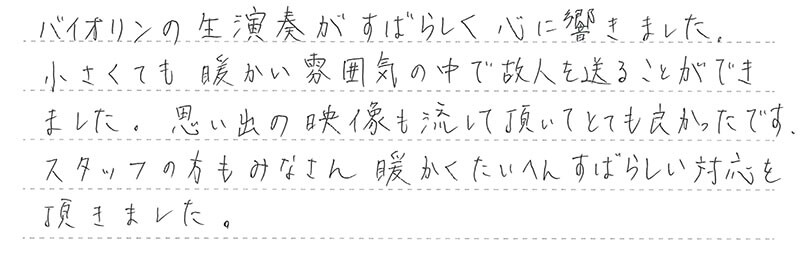 バイオリンの生演奏がすばらしく心に響きました。
小さくても暖かい雰囲気の中で故人を送ることができ
ました。思い出の映像も流して頂いてとても良かったです.
スタッフの方もみなさん暖かくたいへんすばらしい対応を
頂きました。